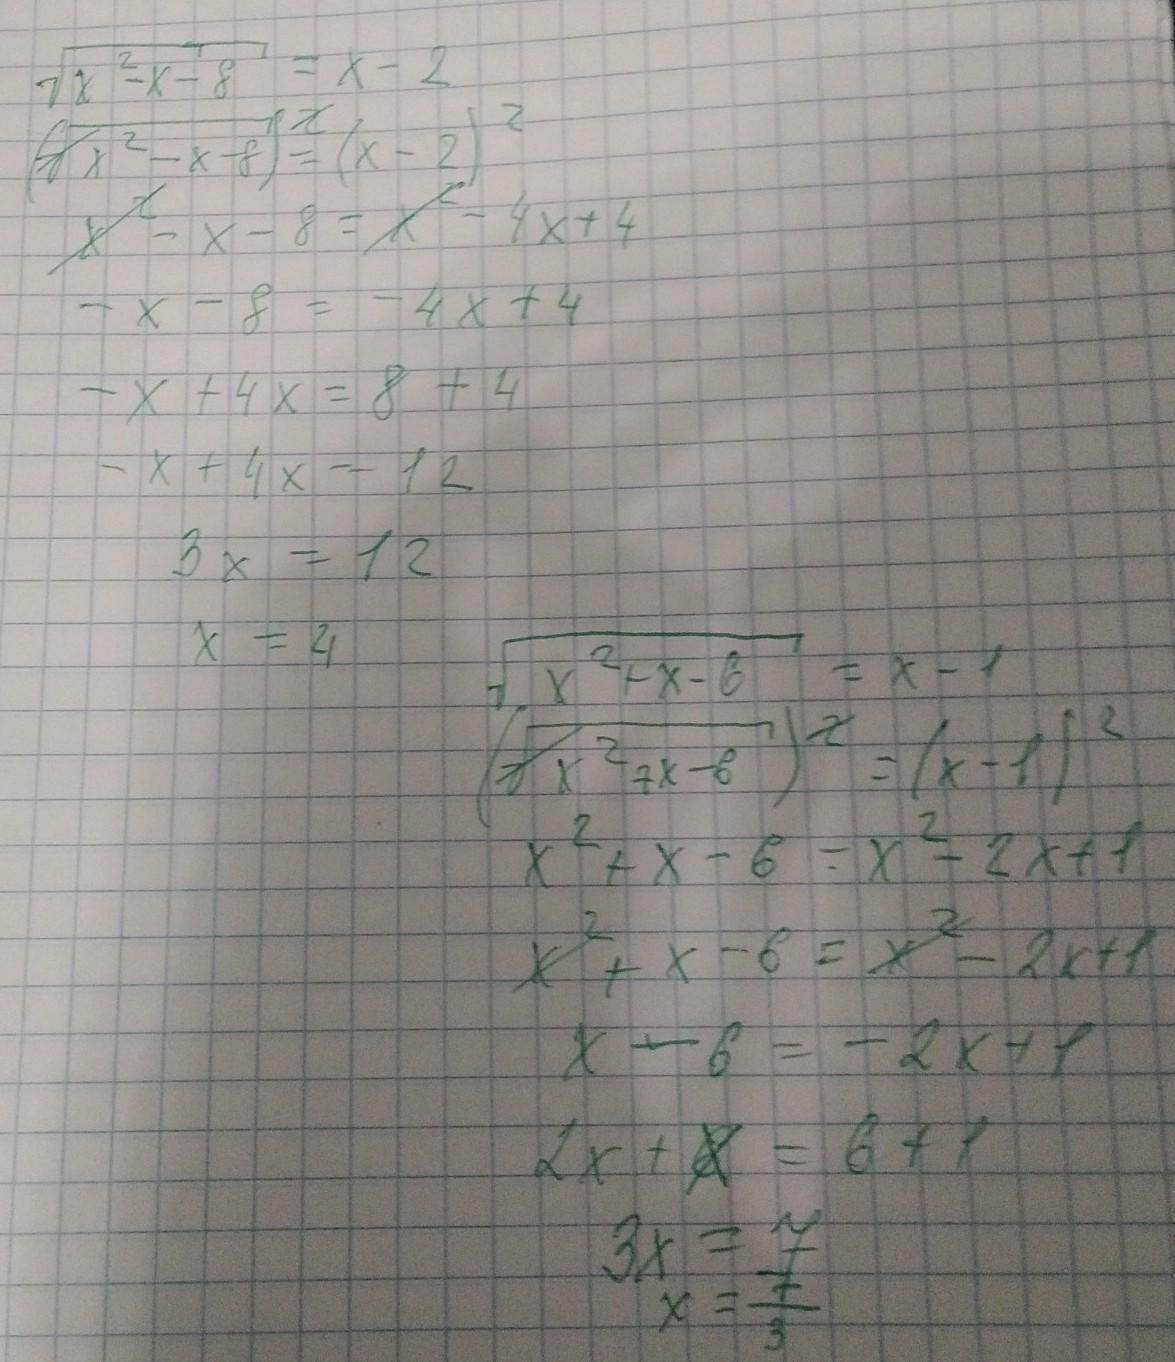 √(x²-x-8) = x-2
(√(x²-x-8))² = (x-2)²
x²-x-8 = x²-4x+4
-x-8 = -4x+4
-x+4x = 8+4
-x+4x - 12
3x = 12
x = 4
√(x²+x-6) = x-1
(√(x²+x-6))² = (x-1)²
x²+x-6 = x²-2x+1
x²+x-6 = x²-2x+1
x-6 = -2x+1
2x+x = 6+1
3x = 7
x = 7/3